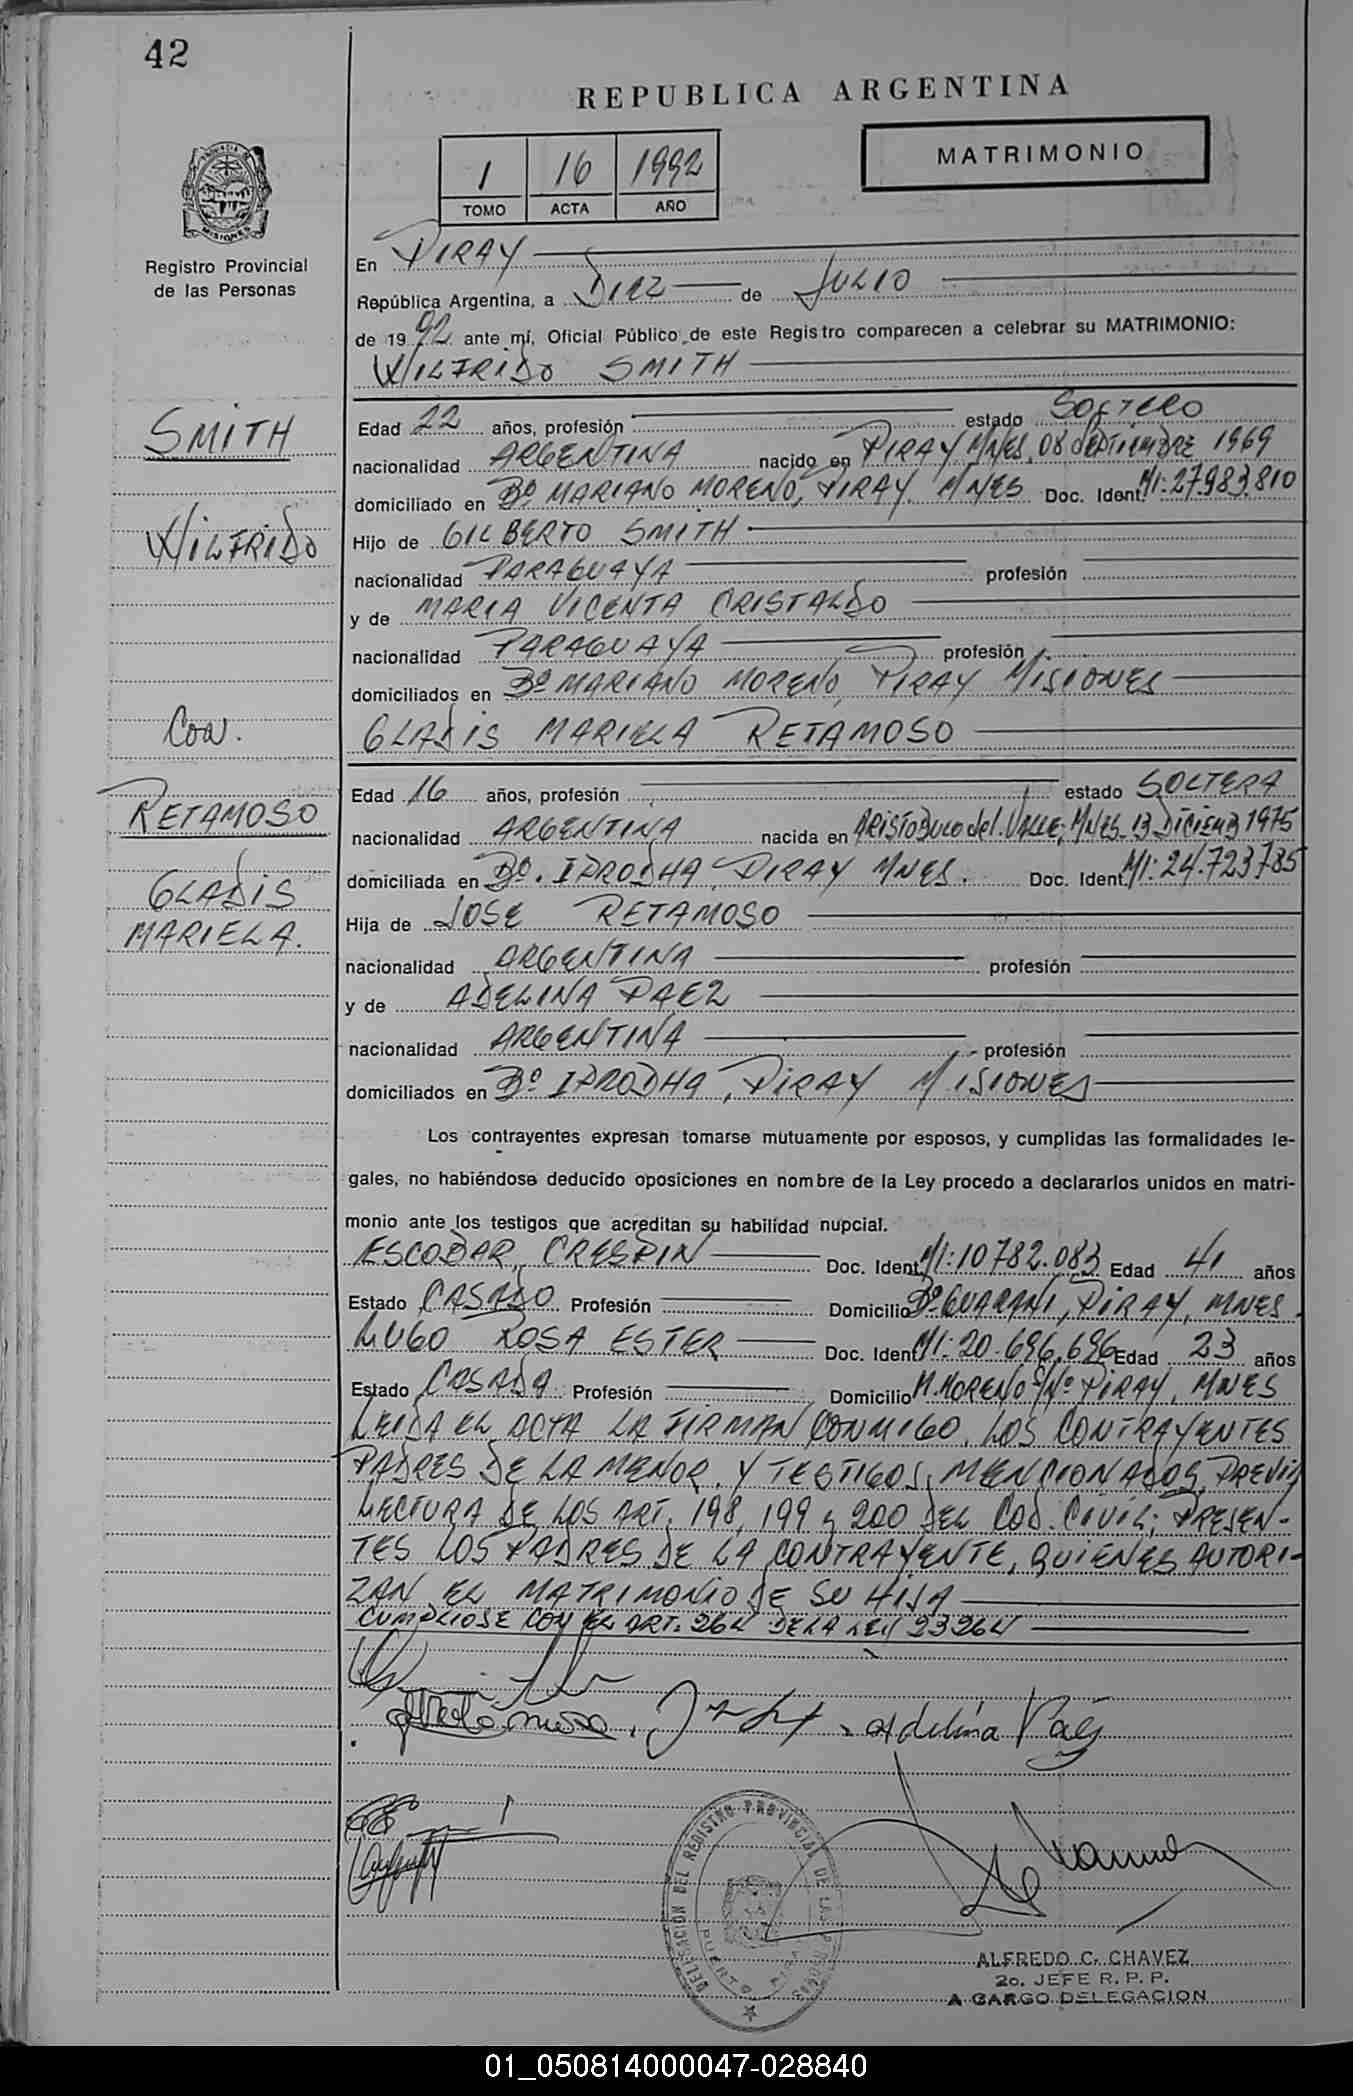 42
REPUBLICA ARGENTINA
MATRIMONIO
1 16 1992
TOMO ACTA AÑO
PROVINCIA DE MISIONES
Registro Provincial
de las Personas
En PIRAY
República Argentina, a DIEZ de JULIO
de 1992 ante mí, Oficial Público de este Registro comparecen a celebrar su MATRIMONIO:
WILFRIDO SMITH
SMITH
WILFRIDO
Con.
RETAMOSO
GLADIS
MARIELA.
Edad 22 años, profesión estado SOLTERO
nacionalidad ARGENTINA nacido en PIRAY MNES, 08 SEPTIEMBRE 1969
domiciliado en Bº MARIANO MORENO, PIRAY MNES Doc. Ident. MI: 27.983.810
Hijo de GILBERTO SMITH
nacionalidad PARAGUAYA profesión
y de MARIA VICENTA CRISTALDO
nacionalidad PARAGUAYA profesión
domiciliados en Bº MARIANO MORENO, PIRAY MISIONES
GLADIS MARIELA RETAMOSO
Edad 16 años, profesión estado SOLTERA
nacionalidad ARGENTINA nacida en ARISTOBULO del VALLE, MNES. 13 DICIEMB 1975
domiciliada en Bº. IPRODHA, PIRAY MNES. Doc. Ident. MI: 24.723.785
Hija de JOSE RETAMOSO
nacionalidad ARGENTINA profesión
y de ADELINA PAEZ
nacionalidad ARGENTINA profesión
domiciliados en Bº IPRODHA, PIRAY MISIONES
Los contrayentes expresan tomarse mutuamente por esposos, y cumplidas las formalidades le-
gales, no habiéndose deducido oposiciones en nombre de la Ley procedo a declararlos unidos en matri-
monio ante los testigos que acreditan su habilidad nupcial.
ESCOBAR, CRESPIN Doc. Ident. MI: 10782.083 Edad 41 años
Estado CASADO Profesión Domicilio Bº GUARANI, PIRAY, MNES.
LUGO ROSA ESTER Doc. Ident. MI: 20.696.696 Edad 23 años
Estado CASADA Profesión Domicilio M. MORENO S/Nº PIRAY, MNES
LEIDA EL ACTA LA FIRMAN CONMIGO, LOS CONTRAYENTES
PADRES DE LA MENOR Y TESTIGOS, MENCIONADOS, PREVIA
LECTURA DE LOS ART. 198, 199 y 200 DEL COD. CIVIL; PRESEN-
TES LOS PADRES DE LA CONTRAYENTE, QUIENES AUTORI-
ZAN EL MATRIMONIO DE SU HIJA
CUMPLIOSE CON EL ART. 264 DE LA LEY 23264
Adelina Páez
DELEGACION DEL REGISTRO PROVINCIAL DE LAS PERSONAS
PUERTO PIRAY
ALFREDO C. CHAVEZ
2o. JEFE R. P. P.
A CARGO DELEGACION
01_050814000047-028840